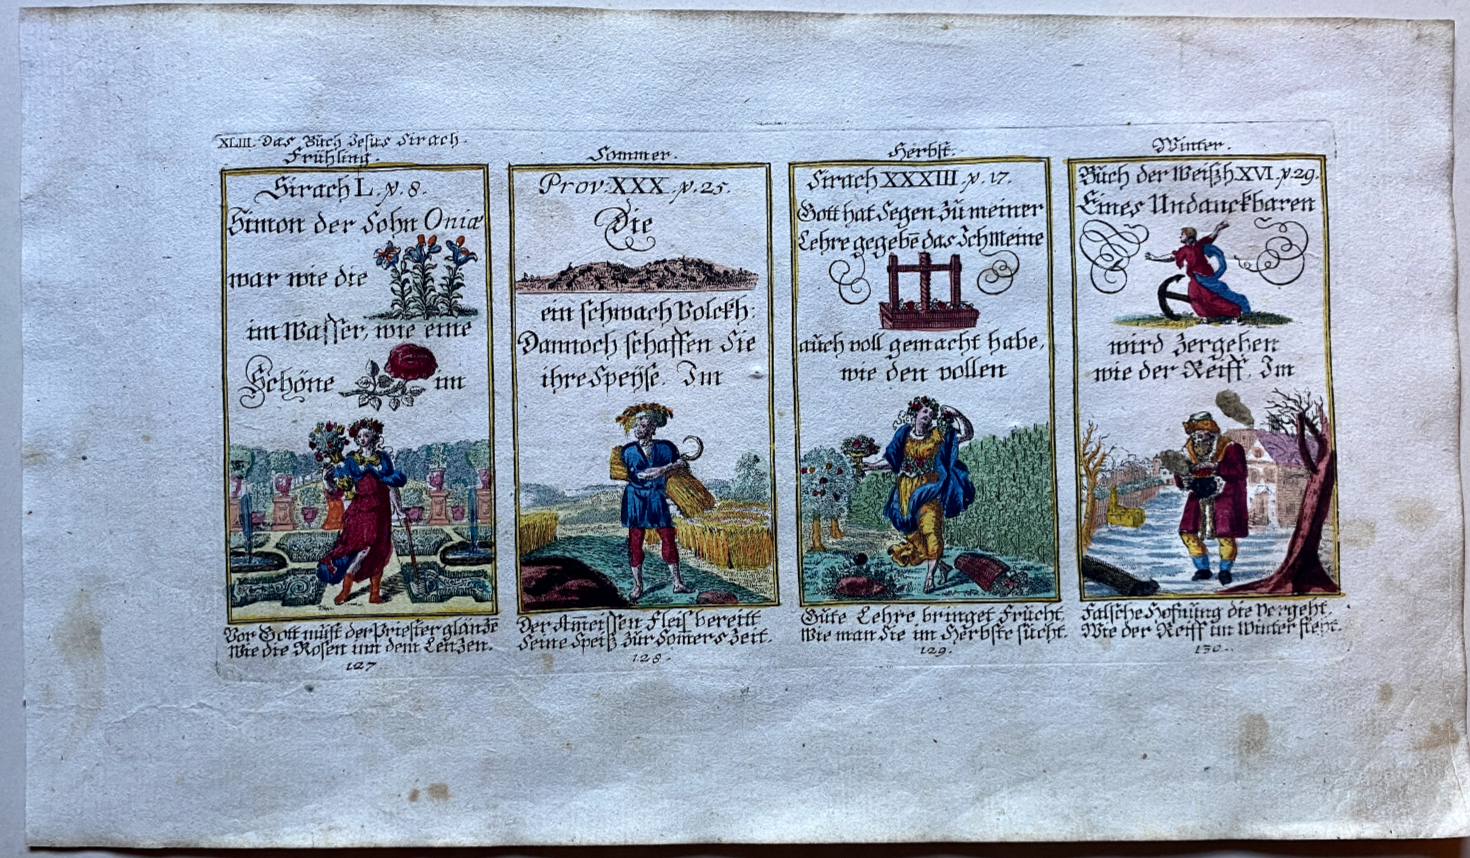 XLIII. Das Buch Jesus Sirach.
Frühling.
Sirach L. v. 8.
Simon der Sohn Oniæ
war wie die
im Wasser, wie eine
Schöne im
Vor Gott müst der Priester glantzē
Wie die Rosen um dem Lentzen.
127
Sommer.
Prov. XXX. v. 25.
Die
ein schwach Volckh:
Dannoch schaffen Sie
ihre Speyse. Im
Der Ameissen Fleis bereitt
Seine Speiß zur Somers Zeit.
128.
Herbst.
Sirach XXXIII. v. 17.
Gott hat Segen zu meiner
Lehre gegebē das Ich Meine
auch voll gemacht habe,
wie den vollen
Gute Lehre bringet Frucht
Wie man Sie im Herbste sucht.
129.
Winter.
Buch der Weißh XVI. v 29.
Eines Undanckbaren
wird zergehen
wie der Reiff. Im
Falsche Hofnung die vergeht,
Wie der Reiff im Winter steht.
130.